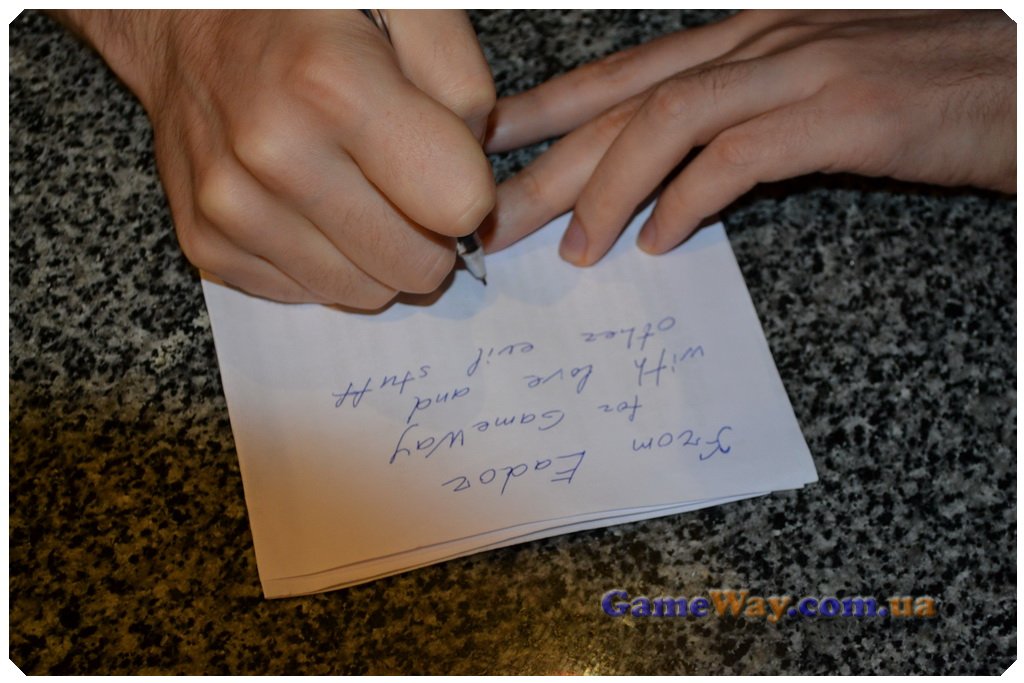 From Eador
for GameWay
with love and
other evil stuff
GameWay.com.ua